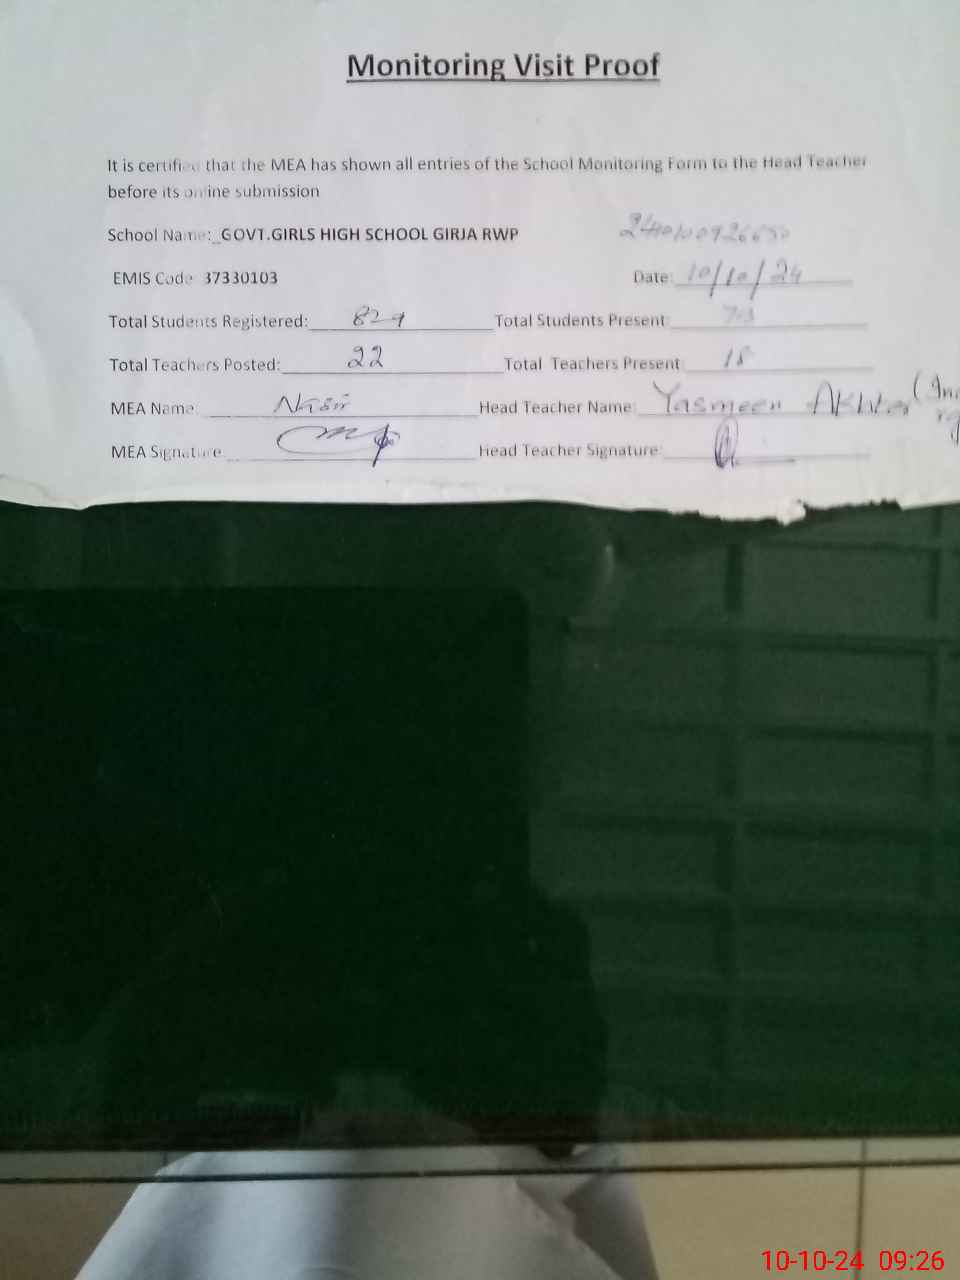 Monitoring Visit Proof
It is certified that the MEA has shown all entries of the School Monitoring Form to the Head Teacher
before its online submission
School Name:_GOVT.GIRLS HIGH SCHOOL GIRJA RWP
EMIS Code 37330103 Date: 10/10/24
Total Students Registered: 829 Total Students Present:
Total Teachers Posted: 22 Total Teachers Present: 18
MEA Name: Nasir Head Teacher Name: Yasmeen Akhter
MEA Signature: Head Teacher Signature:
10-10-24 09:26